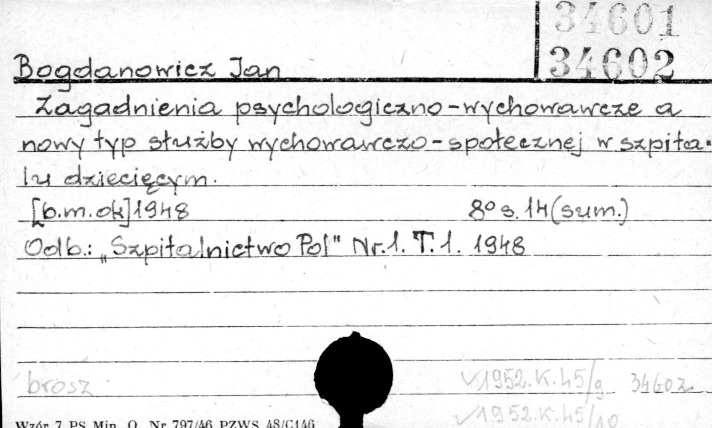 34601
34602
Bogdanowicz Jan
Zagadnienia psychologiczno-wychowawcze a
nowy typ służby wychowawczo-społecznej w szpita-
lu dziecięcym.
[b.m.ok] 1948 8° s. 14 (sum.)
Odb.: „Szpitalnictwo Pol" Nr. 1. T. 1. 1948
brosz. √1952.K.45/9 34602
√1952.K.45/10
Wzór 7 PS Min. O. Nr 797/46 PZWS 48/C146